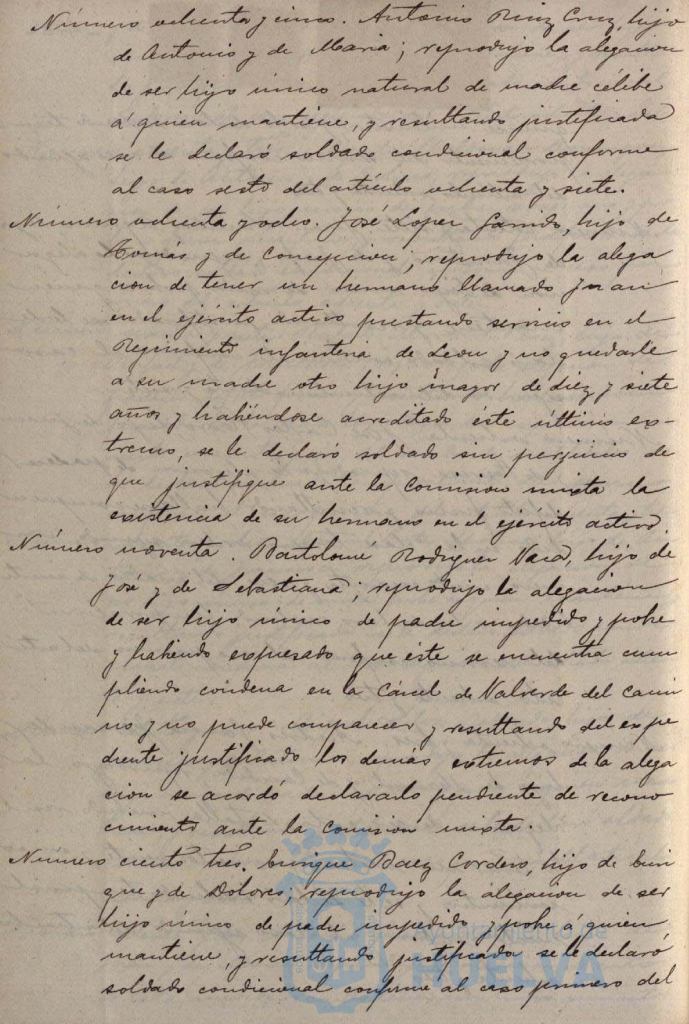 Número ochenta y cinco. Antonio Ruiz Cruz, hijo
de Antonio y de Maria; reprodujo la alegacion
de ser hijo único natural de madre célibe
á quien mantiene, y resultando justificada
se le declaró soldado condicional conforme
al caso sesto del artículo ochenta y siete.
Número ochenta y ocho. José Lopez Garrido, hijo de
Tomás y de Concepcion; reprodujo la alega
cion de tener un hermano llamado Juan
en el ejército activo prestando servicio en el
Regimiento infanteria de Leon y no quedarle
á su madre otro hijo mayor de diez y siete
años y habiéndose acreditado éste último ex-
tremo, se le declaró soldado sin perjuicio de
que justifique ante la Comision mixta la
existencia de su hermano en el ejército activo.
Número noventa. Bartolomé Rodriguez Vaca, hijo de
José y de Sebastiana; reprodujo la alegacion
de ser hijo único de padre impedido y pobre
y habiendo expresado que éste se encuentra cum
pliendo condena en la Cárcel de Valverde del Cami
no y no puede comparecer y resultando del expe
diente justificado los demás extremos de la alega
cion se acordó declararlo pendiente de recono
cimiento ante la Comision mixta.
Número ciento tres. Enrique Baez Cordero, hijo de Enri
que y de Dolores; reprodujo la alegacion de ser
hijo único de padre impedido y pobre á quien
mantiene, y resultando justificada se le declaró
soldado condicional conforme al caso primero del
AYUNTAMIENTO DE
HUELVA